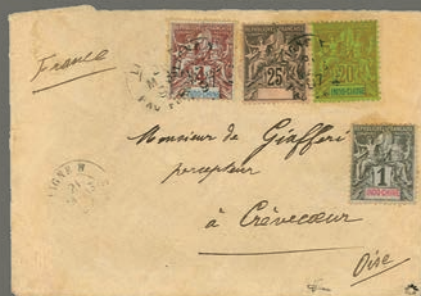 France
25
20
INDO-CHINE
1
INDO-CHINE
LIGNE N
Monsieur de Giafferi
percepteur
à Crèvecœur
Oise